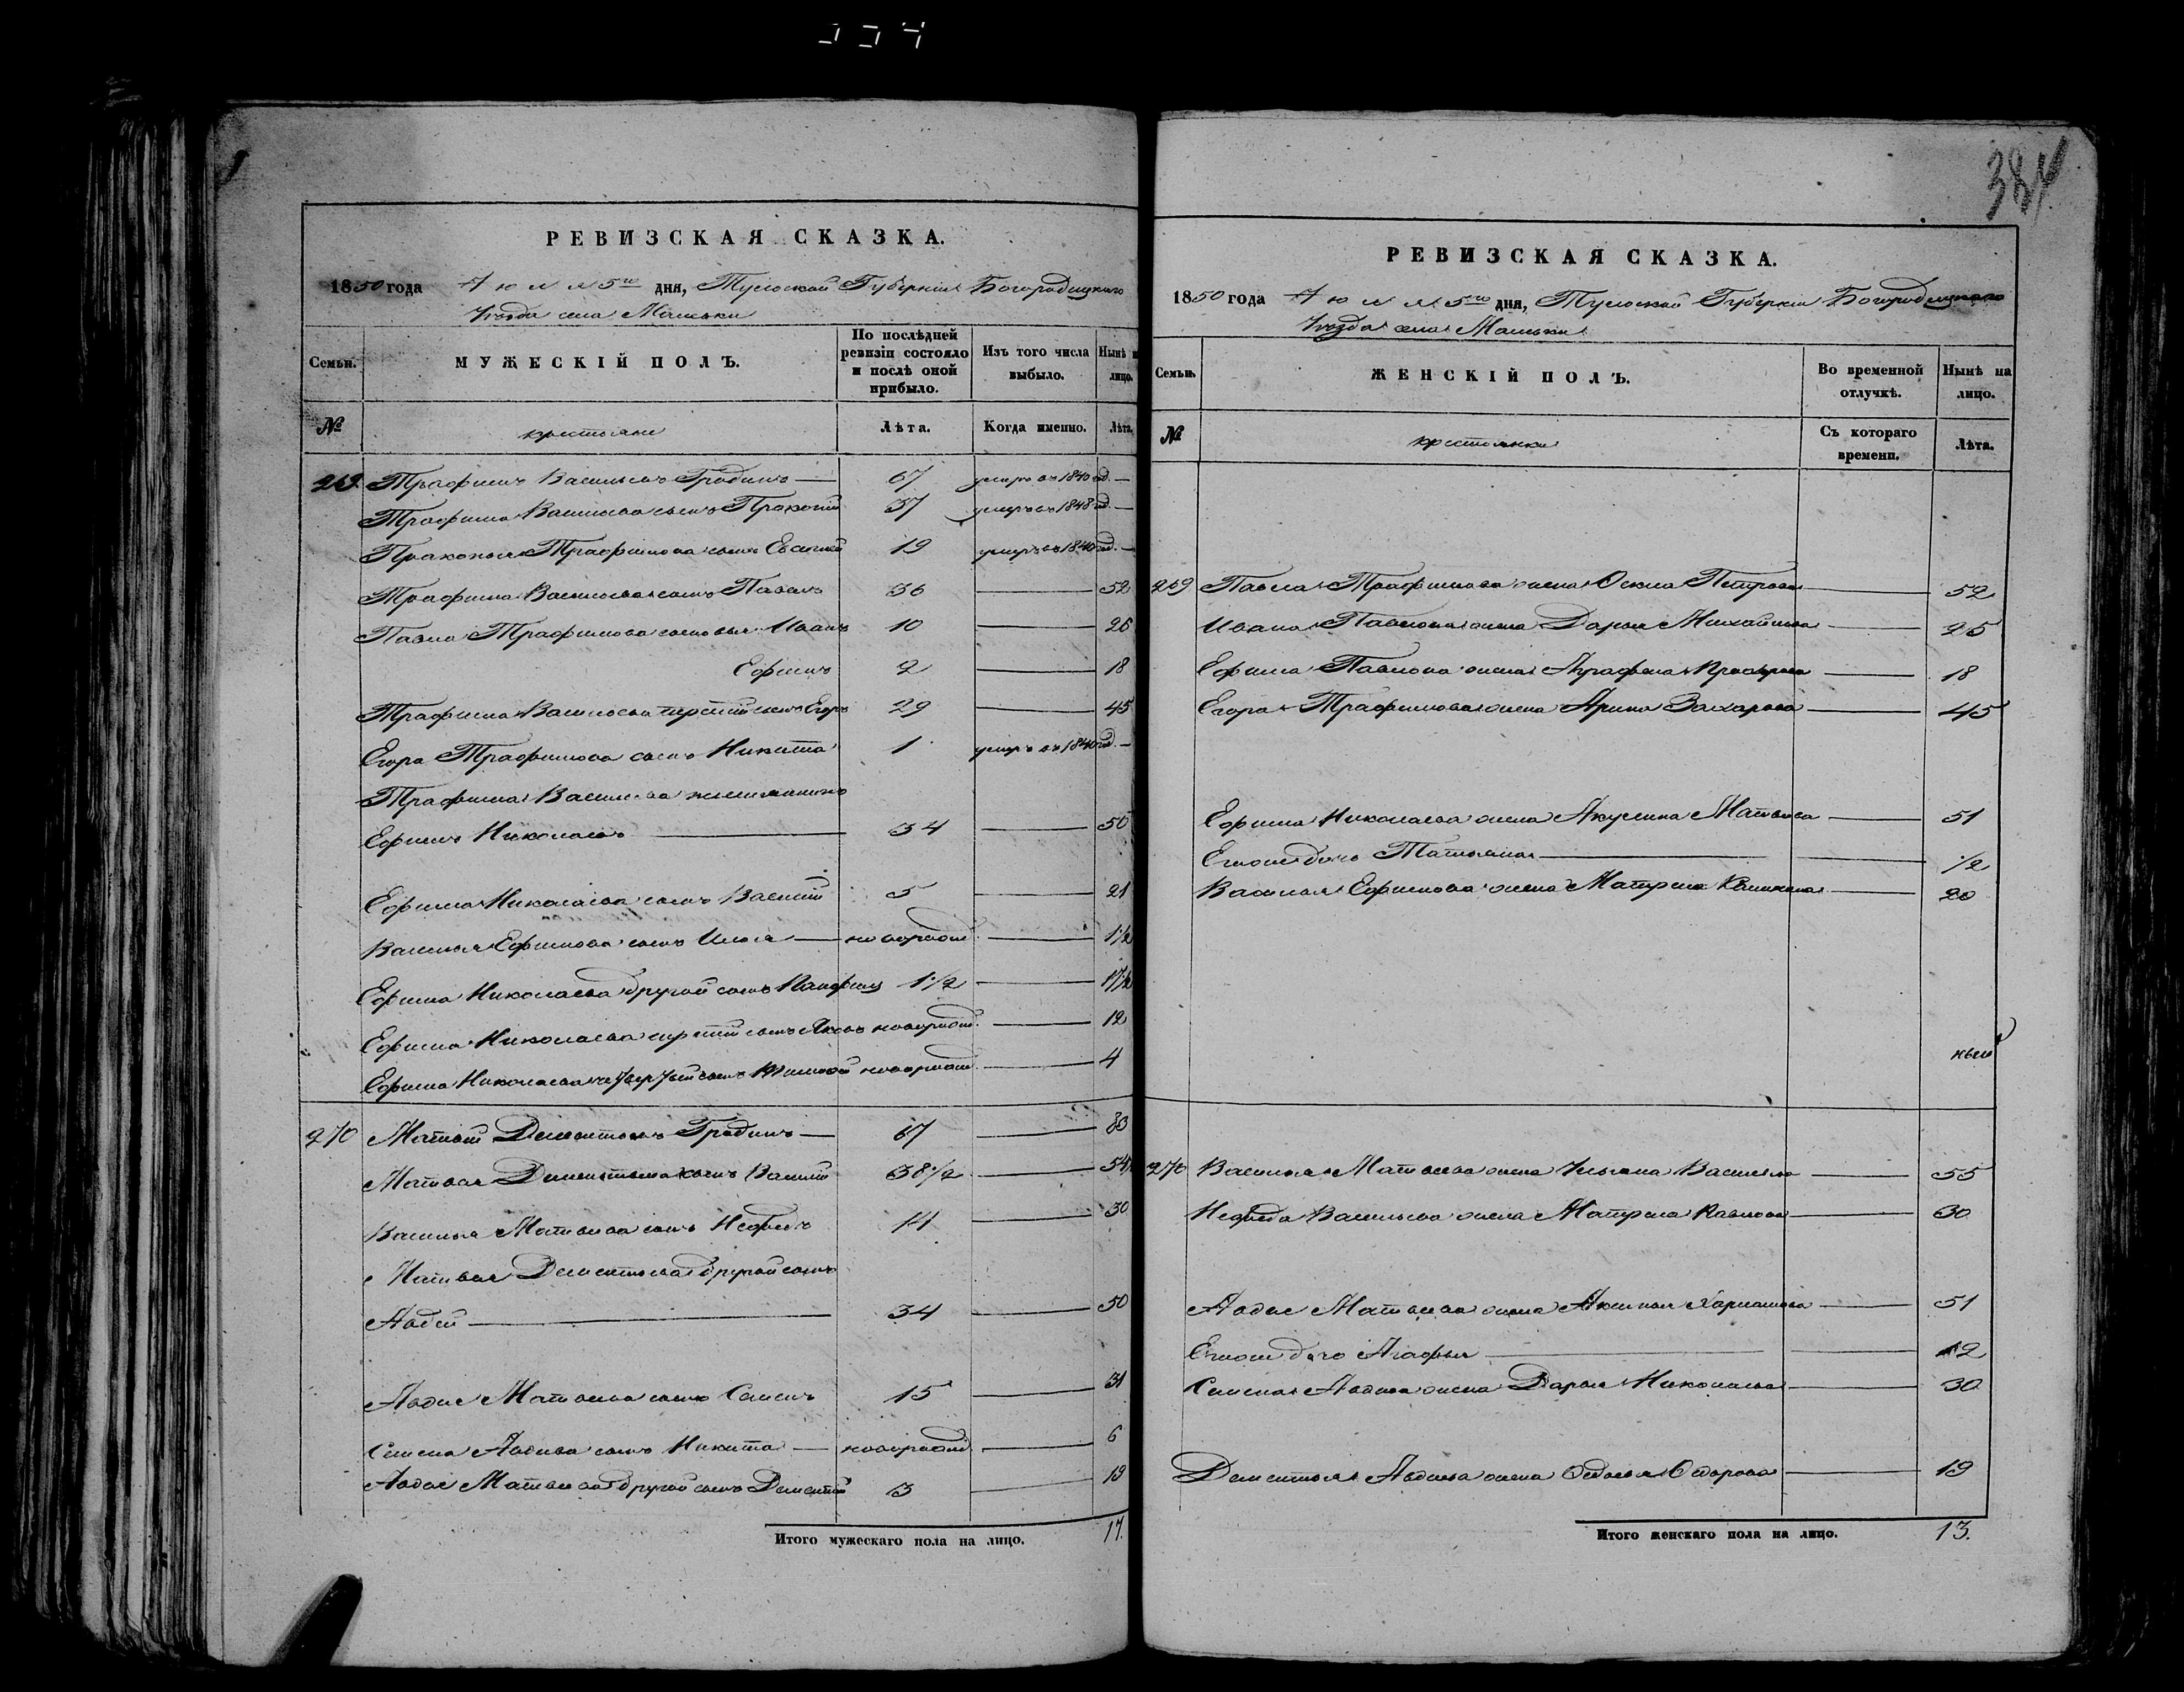 334
384
РЕВИЗСКАЯ СКАЗКА.
1850 года Июля 5го дня, Тульской Губернии Богородицкаго
Уѣзда села
Семьи. МУЖЕСКІЙ ПОЛЪ. По послѣдней ревизіи состояло и послѣ оной прибыло. Изъ того числа выбыло. Нынѣ на лицо.
№ крестьяне Лѣта. Когда именно. Лѣта.
269. Трафимъ Васильевъ Гродинъ 67 умеръ въ 1840 год.
Трафима Васильева сынъ Пракофій 37 умеръ въ 1848 год.
Пракофья Трафимова сынъ Евсигній 19 умеръ въ 1840 год.
Трафима Васильева сынъ Павелъ 36 52
Павла Трафимова сыновья Иванъ 10 26
Ефимъ 2 18
Трафима Васильева третій сынъ Егоръ 29 45
Егора Трафимова сынъ Никита 1 умеръ въ 1840 год.
Трафима Васильева племянникъ
Ефимъ Николаевъ 34 50
Ефима Николаева сынъ Василій 5 21
Василья Ефимова сынъ Илья новорожд. 1 1/2
Ефима Николаева другой сынъ 1 1/2 17 1/2
Ефима Николаева третій сынъ Яковъ новорожд. 12
Ефима Николаева четвертый сынъ новорожд. 4
270 Матвей Дементьевъ Гродинъ 67 83
Матвея Дементьева сынъ Василій 38 1/2 54
Василья Матвеева сынъ Нефедъ 14 30
Матвея Дементьева другой сынъ
Авдей 34 50
Авдея Матвеева сынъ Семенъ 15 31
Семена Авдеева сынъ Никита новорожд. 6
Авдея Матвеева другой сынъ Дементій 3 19
Итого мужескаго пола на лицо. 17.
РЕВИЗСКАЯ СКАЗКА.
1850 года Июля 5го дня, Тульской Губернии Богородицкаго
Уѣзда села
Семьи. ЖЕНСКІЙ ПОЛЪ. Во временной отлучкѣ. Нынѣ на лицо.
№ крестьянки Съ котораго времени. Лѣта.
269 Павла Трафимова жена Петрова 52
Ивана Павлова жена Дарья Михайлова 25
Ефима Павлова жена Аграфена 18
Егора Трафимова жена Арина Захарова 45
Ефима Николаева жена Акулина Матвеева 51
Ево дочь Татьяна 1/2
Василья Ефимова жена Матрена 20
270 Василья Матвеева жена Ульяна Васильева 55
Нефеда Васильева жена Матрена Павлова 30
Авдея Матвеева жена Аксинья 51
Ево дочь Агафья 12
Семена Авдеева жена Дарья Николаева 30
Дементья Авдеева жена Федорова 19
Итого женскаго пола на лицо. 13.